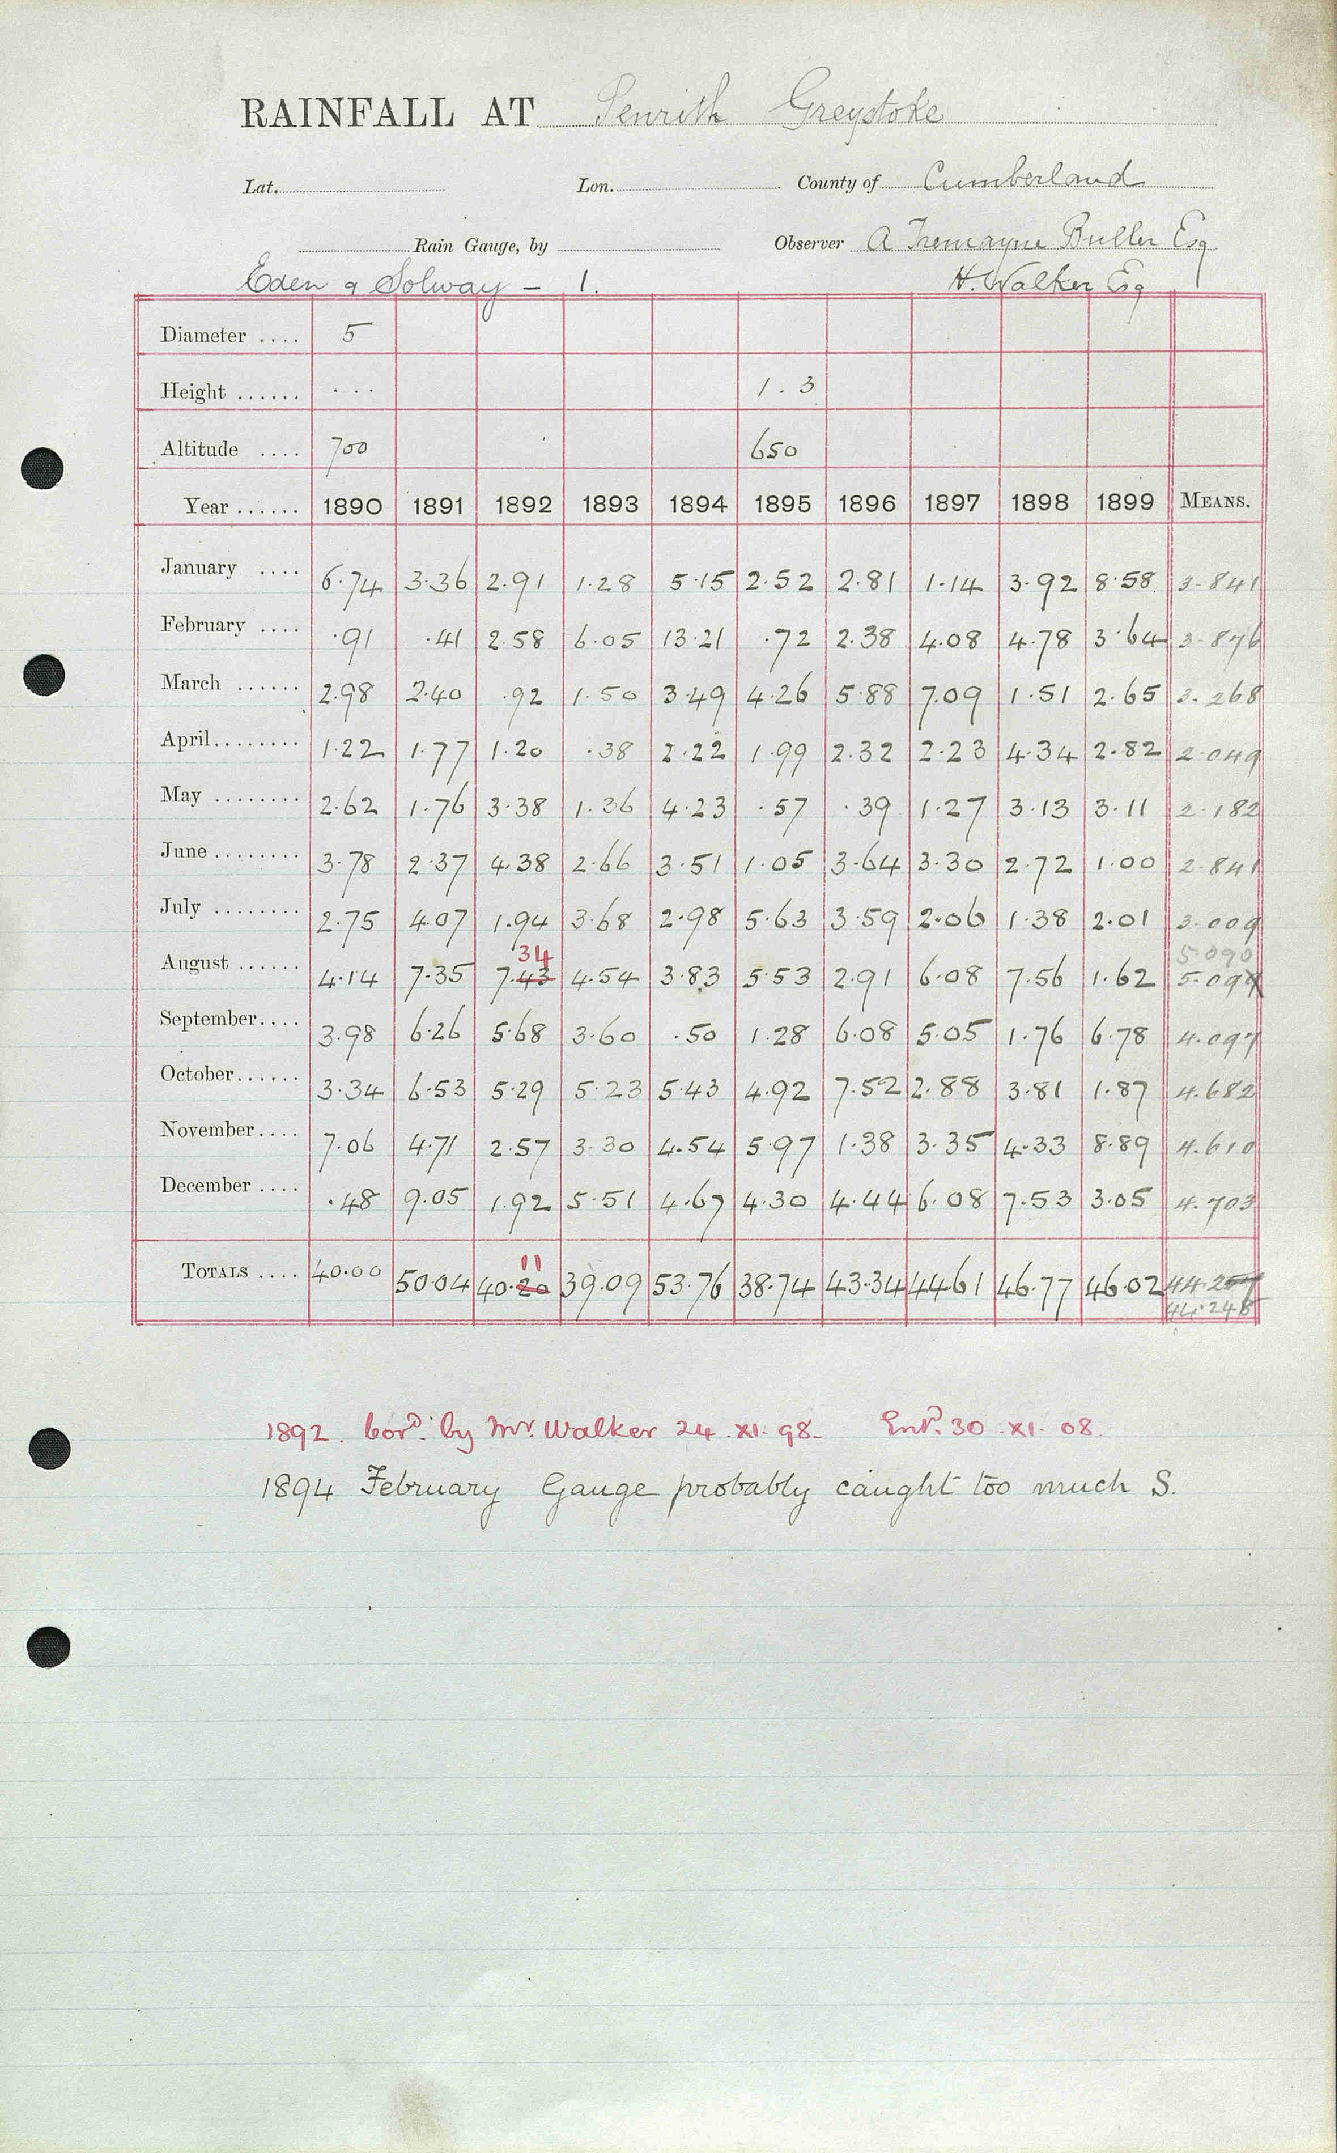 RAINFALL AT Penrith Greystoke
Lat. Lon. County of Cumberland
Rain Gauge, by Observer A Tremayne Buller Esq
Eden & Solway - 1. H. Walker Esq
Diameter .... 5
Height ...... ... 1.3
Altitude .... 700 650
Year ...... 1890 1891 1892 1893 1894 1895 1896 1897 1898 1899 MEANS.
January .... 6.74 3.36 2.91 1.28 5.15 2.52 2.81 1.14 3.92 8.58 3.841
February .... .91 .41 2.58 6.05 13.21 .72 2.38 4.08 4.78 3.64 3.876
March ...... 2.98 2.40 .92 1.50 3.49 4.26 5.88 7.09 1.51 2.65 3.268
April........ 1.22 1.77 1.20 .38 2.22 1.99 2.32 2.23 4.34 2.82 2.049
May ........ 2.62 1.76 3.38 1.36 4.23 .57 .39 1.27 3.13 3.11 2.182
June ........ 3.78 2.37 4.38 2.66 3.51 1.05 3.64 3.30 2.72 1.00 2.841
July ........ 2.75 4.07 1.94 3.68 2.98 5.63 3.59 2.06 1.38 2.01 3.009
34 5.090
August ...... 4.14 7.35 7.43 4.54 3.83 5.53 2.91 6.08 7.56 1.62 5.099
September.... 3.98 6.26 5.68 3.60 .50 1.28 6.08 5.05 1.76 6.78 4.097
October...... 3.34 6.53 5.29 5.23 5.43 4.92 7.52 2.88 3.81 1.87 4.682
November.... 7.06 4.71 2.57 3.30 4.54 5.97 1.38 3.35 4.33 8.89 4.610
December .... .48 9.05 1.92 5.51 4.67 4.30 4.44 6.08 7.53 3.05 4.703
11
TOTALS .... 40.00 50.04 40.20 39.09 53.76 38.74 43.34 44.61 46.77 46.02 44.257
44.248
1892. Cord. by Mr. Walker 24.XI.98. Entd. 30.XI.08.
1894 February Gauge probably caught too much S.